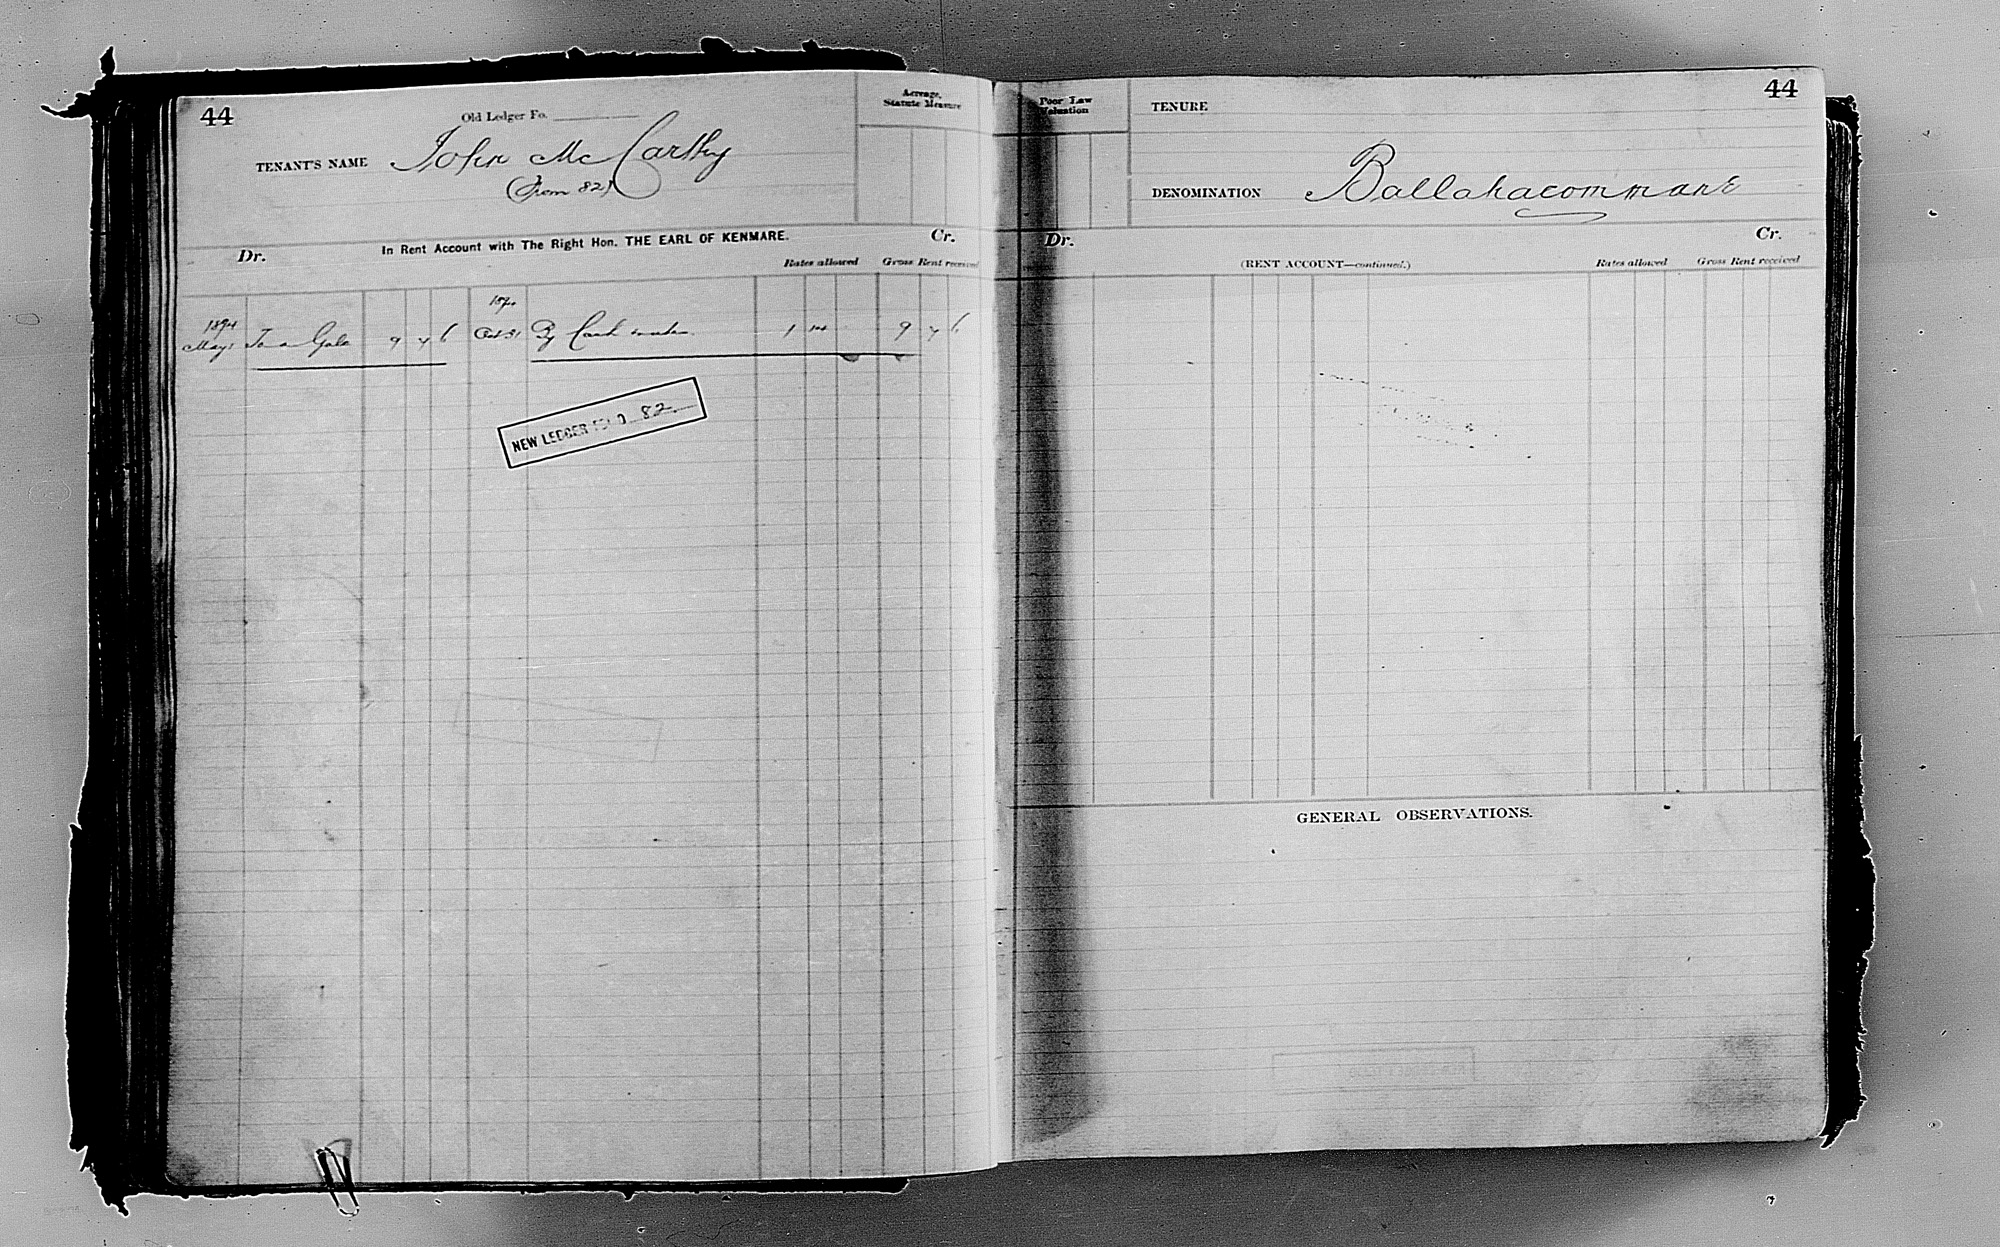 44
Old Ledger Fo.
TENANT'S NAME John McCarthy
(From 82)
Acreage,
Statute Measure
In Rent Account with The Right Hon. THE EARL OF KENMARE.
Dr. Cr.
Rates allowed Gross Rent received
1894 1894
May 1 To a Gale 9 7 6 Oct 31 By Cash 1 9 7 6
NEW LEDGER FOLIO 82
44
Poor Law
Valuation
TENURE
DENOMINATION Ballahacommane
Dr. Cr.
(RENT ACCOUNT—continued.) Rates allowed Gross Rent received
GENERAL OBSERVATIONS.